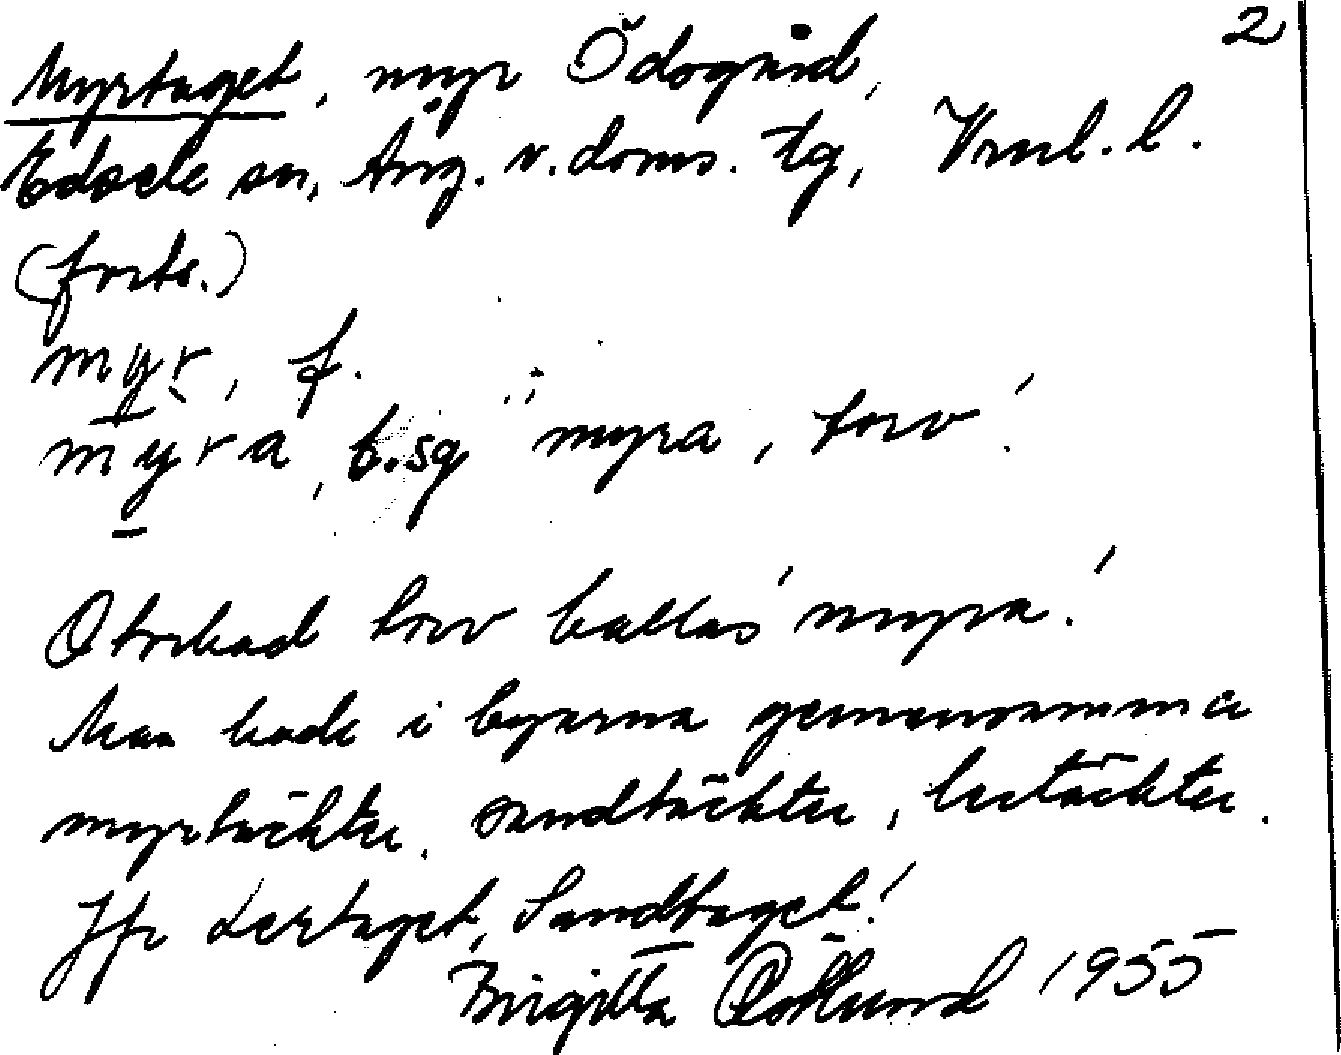 2
Myrtaget, myr Ödsgård,
Edsele sn, Ång. v. doms. tg, Vrnl. l.
(forts.)
myr, f.
myra, b.sg 'myra, torv'.
Otorkad torv kallas 'myra'.
Man hade i byarna gemensamma
myrtäkter, sandtäkter, lertäkter.
Jfr Lertaget, Sandtaget!
Birgitta Östlund 1955